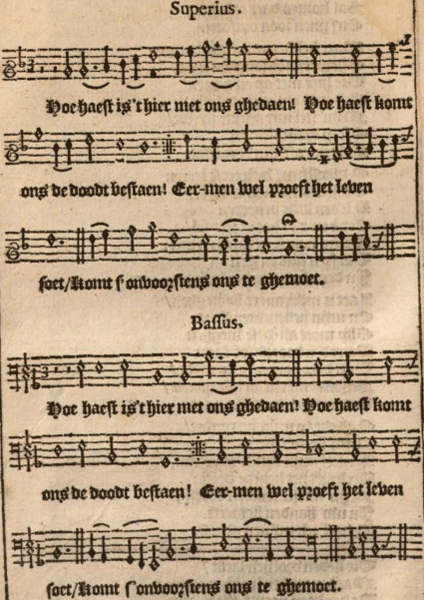 Superius.
Hoe haest is't hier met ons ghedaen! Hoe haest komt
ons de doodt bestaen! Eer-men wel proeft het leven
soet/komt s'onvoorsiens ons te ghemoet.
Bassus.
Hoe haest is't hier met ons ghedaen! Hoe haest komt
ons de doodt bestaen! Eer-men wel proeft het leven
soet/komt s'onvoorsiens ons te ghemoet.